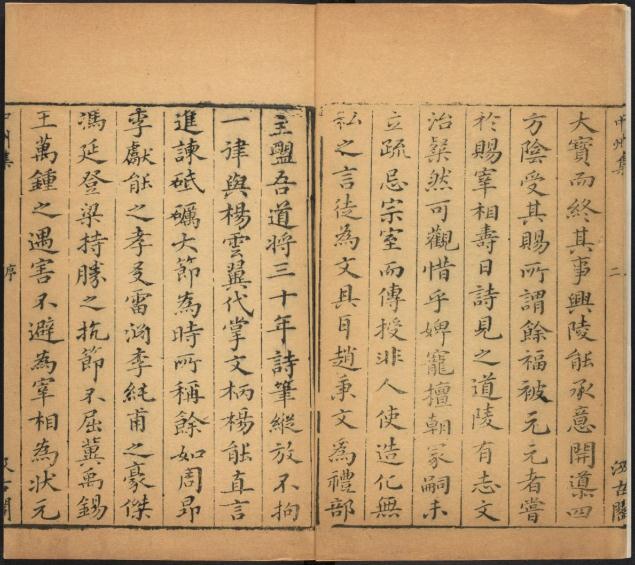 中州集 二 汲古閣
大寳而終其事興陵能承意開導四
方陰受其賜所謂餘福被元元者嘗
於賜宰相壽日詩見之道陵有志文
治粲然可觀惜乎婢寵擅朝冢嗣未
立疏忌宗室而傳授非人使造化無
私之言徒為文具耳趙秉文為禮部
主盟吾道將三十年詩筆縱放不拘
一律與楊雲翼代掌文柄楊能直言
進諫砥礪大節為時所稱餘如周昂
李獻能之孝友雷淵李純甫之豪傑
馮延登梁持勝之抗節不屈冀禹錫
王萬鍾之遇害不避為宰相為狀元
中州集 序 汲古閣